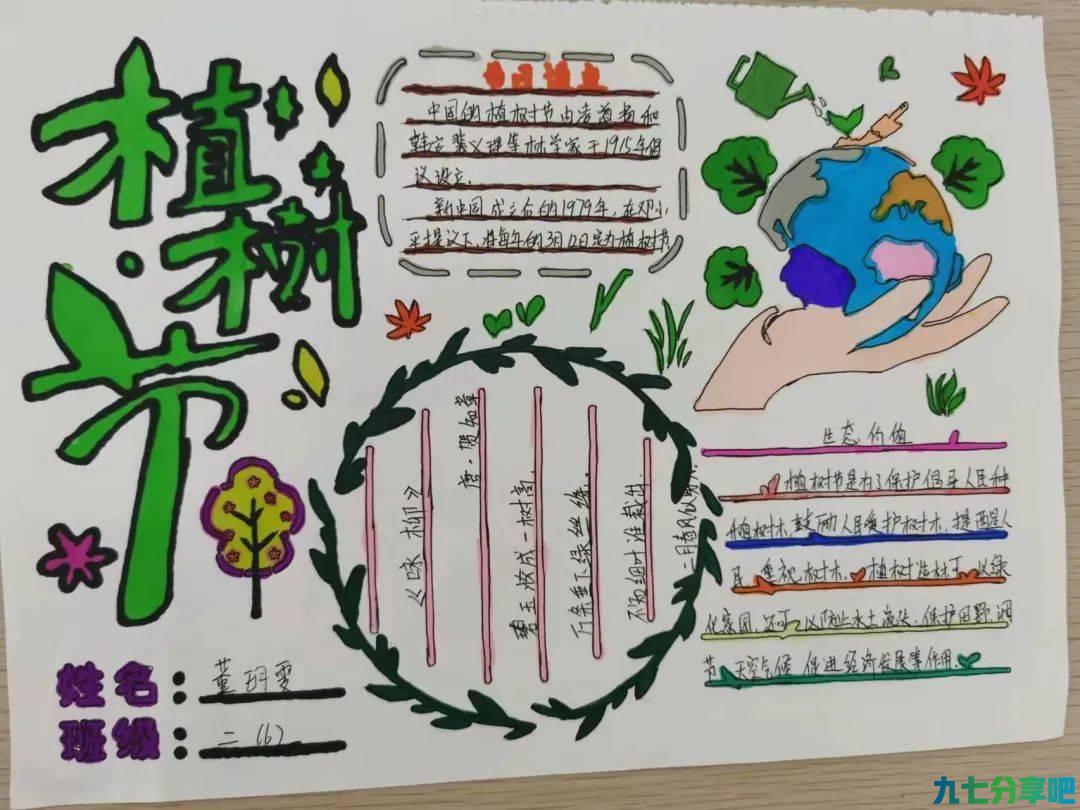 植树节
中国的植树节由凌道扬和
韩安裴义理等林学家于1915年倡
议设立.
新中国成立后的1979年,在邓小
平提议下,将每年的3月12日定为植树节
《咏柳》
唐·贺知章
碧玉妆成一树高,
万条垂下绿丝绦.
不知细叶谁裁出,
二月春风似剪刀.
生态价值
植树节是为了保护倡导人民种
植树木,鼓励人民爱护树木,提醒人
民重视树木.植树造林可以绿
化家园,还可以防止水土流失、保护田野、调
节天空气候、促进经济发展等作用.
姓名:董玥雯
班级:二(6)
九七分享吧